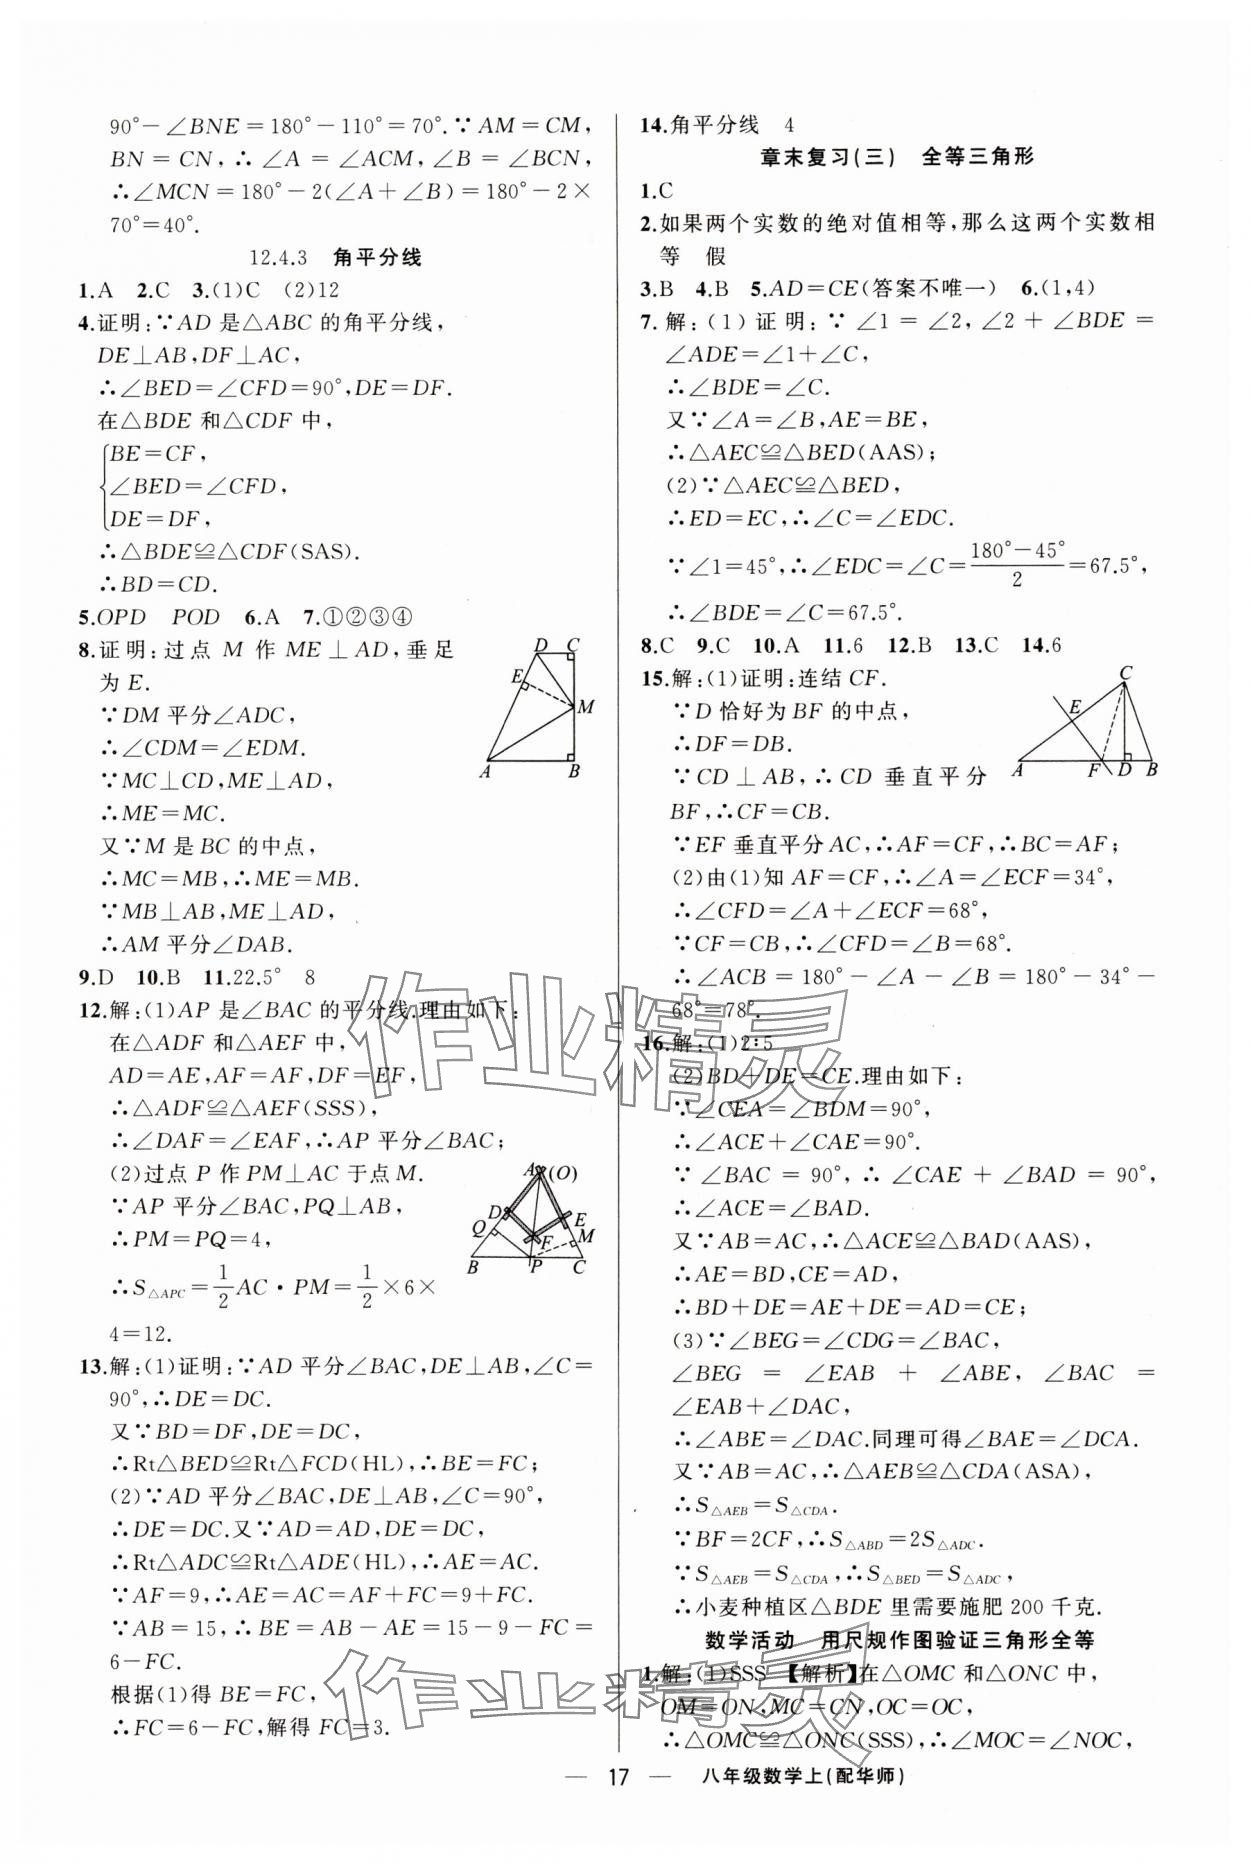 90°－∠BNE＝180°－110°＝70°.∵AM＝CM,
BN＝CN,∴∠A＝∠ACM,∠B＝∠BCN,
∴∠MCN＝180°－2(∠A＋∠B)＝180°－2×
70°＝40°.
12.4.3　角平分线
1.A　2.C　3.(1)C　(2)12
4.证明:∵AD是△ABC的角平分线,
DE⊥AB,DF⊥AC,
∴∠BED＝∠CFD＝90°,DE＝DF.
在△BDE和△CDF中,
BE＝CF,
∠BED＝∠CFD,
DE＝DF,
∴△BDE≌△CDF(SAS).
∴BD＝CD.
5.OPD　POD　6.A　7.①②③④
8.证明:过点M作ME⊥AD,垂足
为E.
∵DM平分∠ADC,
∴∠CDM＝∠EDM.
∵MC⊥CD,ME⊥AD,
∴ME＝MC.
又∵M是BC的中点,
∴MC＝MB,∴ME＝MB.
∵MB⊥AB,ME⊥AD,
∴AM平分∠DAB.
D C
E
M
A B
9.D　10.B　11.22.5°　8
12.解:(1)AP是∠BAC的平分线.理由如下:
在△ADF和△AEF中,
AD＝AE,AF＝AF,DF＝EF,
∴△ADF≌△AEF(SSS),
∴∠DAF＝∠EAF,∴AP平分∠BAC;
(2)过点P作PM⊥AC于点M.
∵AP平分∠BAC,PQ⊥AB,
∴PM＝PQ＝4,
∴S△APC＝1/2 AC·PM＝1/2×6×
4＝12.
A(O)
D E
Q F M
B P C
13.解:(1)证明:∵AD平分∠BAC,DE⊥AB,∠C＝
90°,∴DE＝DC.
又∵BD＝DF,DE＝DC,
∴Rt△BED≌Rt△FCD(HL),∴BE＝FC;
(2)∵AD平分∠BAC,DE⊥AB,∠C＝90°,
∴DE＝DC.又∵AD＝AD,DE＝DC,
∴Rt△ADC≌Rt△ADE(HL),∴AE＝AC.
∵AF＝9,∴AE＝AC＝AF＋FC＝9＋FC.
∵AB＝15,∴BE＝AB－AE＝15－9－FC＝
6－FC.
根据(1)得BE＝FC,
∴FC＝6－FC,解得FC＝3.
14.角平分线　4
章末复习(三)　全等三角形
1.C
2.如果两个实数的绝对值相等,那么这两个实数相
等　假
3.B　4.B　5.AD＝CE(答案不唯一)　6.(1,4)
7.解:(1)证明:∵∠1＝∠2,∠2＋∠BDE＝
∠ADE＝∠1＋∠C,
∴∠BDE＝∠C.
又∵∠A＝∠B,AE＝BE,
∴△AEC≌△BED(AAS);
(2)∵△AEC≌△BED,
∴ED＝EC,∴∠C＝∠EDC.
∵∠1＝45°,∴∠EDC＝∠C＝(180°－45°)/2＝67.5°,
∴∠BDE＝∠C＝67.5°.
8.C　9.C　10.A　11.6　12.B　13.C　14.6
15.解:(1)证明:连结CF.
∵D恰好为BF的中点,
∴DF＝DB.
∵CD⊥AB,∴CD垂直平分
BF,∴CF＝CB.
∵EF垂直平分AC,∴AF＝CF,∴BC＝AF;
(2)由(1)知AF＝CF,∴∠A＝∠ECF＝34°,
∴∠CFD＝∠A＋∠ECF＝68°,
∵CF＝CB,∴∠CFD＝∠B＝68°.
∴∠ACB＝180°－∠A－∠B＝180°－34°－
68°＝78°.
C
E
A F D B
16.解:(1)2∶5
(2)BD＋DE＝CE.理由如下:
∵∠CEA＝∠BDM＝90°,
∴∠ACE＋∠CAE＝90°.
∵∠BAC＝90°,∴∠CAE＋∠BAD＝90°,
∴∠ACE＝∠BAD.
又∵AB＝AC,∴△ACE≌△BAD(AAS),
∴AE＝BD,CE＝AD,
∴BD＋DE＝AE＋DE＝AD＝CE;
(3)∵∠BEG＝∠CDG＝∠BAC,
∠BEG＝∠EAB＋∠ABE,∠BAC＝
∠EAB＋∠DAC,
∴∠ABE＝∠DAC.同理可得∠BAE＝∠DCA.
又∵AB＝AC,∴△AEB≌△CDA(ASA),
∴S△AEB＝S△CDA.
∵BF＝2CF,∴S△ABD＝2S△ADC.
∵S△AEB＝S△CDA,∴S△BED＝S△ADC,
∴小麦种植区△BDE里需要施肥200千克.
数学活动　用尺规作图验证三角形全等
1.解:(1)SSS　【解析】在△OMC和△ONC中,
OM＝ON,MC＝CN,OC＝OC,
∴△OMC≌△ONC(SSS),∴∠MOC＝∠NOC,
— 17 —　八年级数学上(配华师)
作业精灵
作业精灵